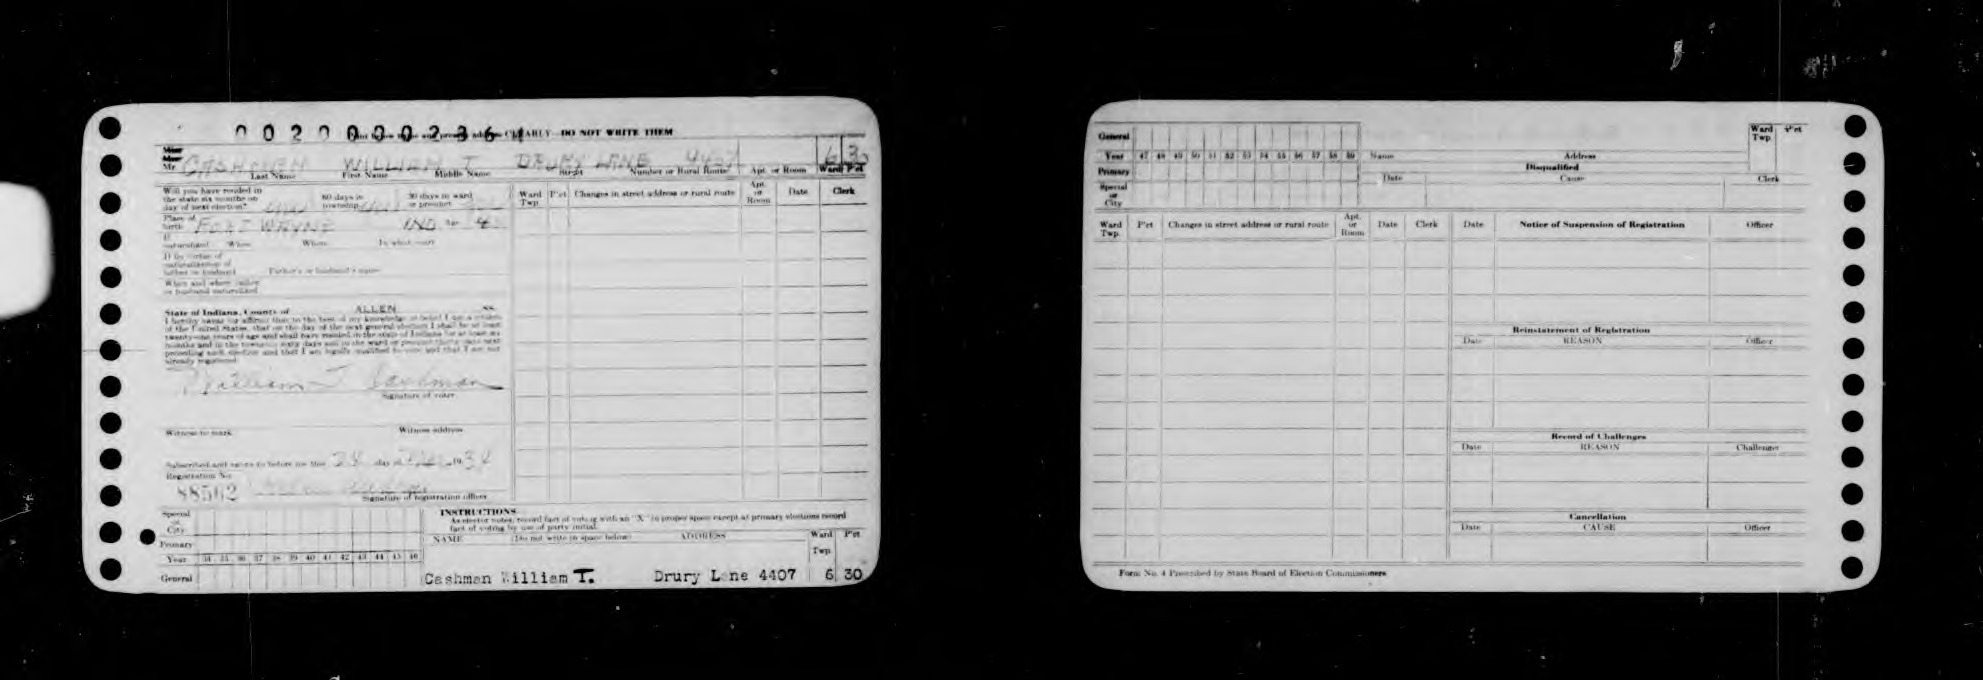 0020000236
CLEARLY DO NOT WRITE THEM
Mr CASHMEN WILLIEM T DRURY LANE 6 30
Last Name First Name Middle Name Street Number or Rural Route Apt. or Room Ward P'ct
Will you have resided in
the state six months on
day of next election?
60 days in
township
30 days in ward
or precinct
Place of
birth FORT WAYNE IND
If
naturalized When Where In what court
If by virtue of
naturalization of
father or husband Father's or husband's name
When and where father
or husband naturalized
State of Indiana, County of ALLEN ss
I hereby swear (or affirm) that to the best of my knowledge or belief I am a citizen
of the United States, that on the day of the next general election I shall be at least
twenty-one years of age and shall have resided in the state of Indiana for at least six
months and in the township sixty days and in the ward or precinct thirty days next
preceding such election and that I am legally qualified to vote and that I am not
already registered
William J Cashman
Signature of voter
Witness to mark Witness address
Subscribed and sworn to before me this day of 1934
Registration No.
88562
Signature of registration officer
Ward
Twp. P'ct Changes in street address or rural route Apt.
or
Room Date Clerk
Special
or
City
Primary
Year 34 35 36 37 38 39 40 41 42 43 44 45 46
General
INSTRUCTIONS
As elector votes, record fact of voting with an "X" in proper space except at primary elections record
fact of voting by use of party initial.
NAME (Do not write in space below) ADDRESS Ward
Twp. P'ct
Cashman William T. Drury Lane 4407 6 30
General
Year 47 48 49 50 51 52 53 54 55 56 57 58 59
Primary
Special
or
City
Name Address Ward
Twp. P'ct
Disqualified
Date Cause Clerk
Ward
Twp. P'ct Changes in street address or rural route Apt.
or
Room Date Clerk
Date Notice of Suspension of Registration Officer
Reinstatement of Registration
Date REASON Officer
Record of Challenges
Date REASON Challenger
Cancellation
Date CAUSE Officer
Form No. 4 Prescribed by State Board of Election Commissioners